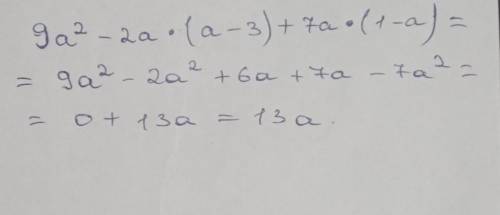 9a² - 2a · (a - 3) + 7a · (1 - a) =
= 9a² - 2a² + 6a + 7a - 7a² =
= 0 + 13a = 13a.